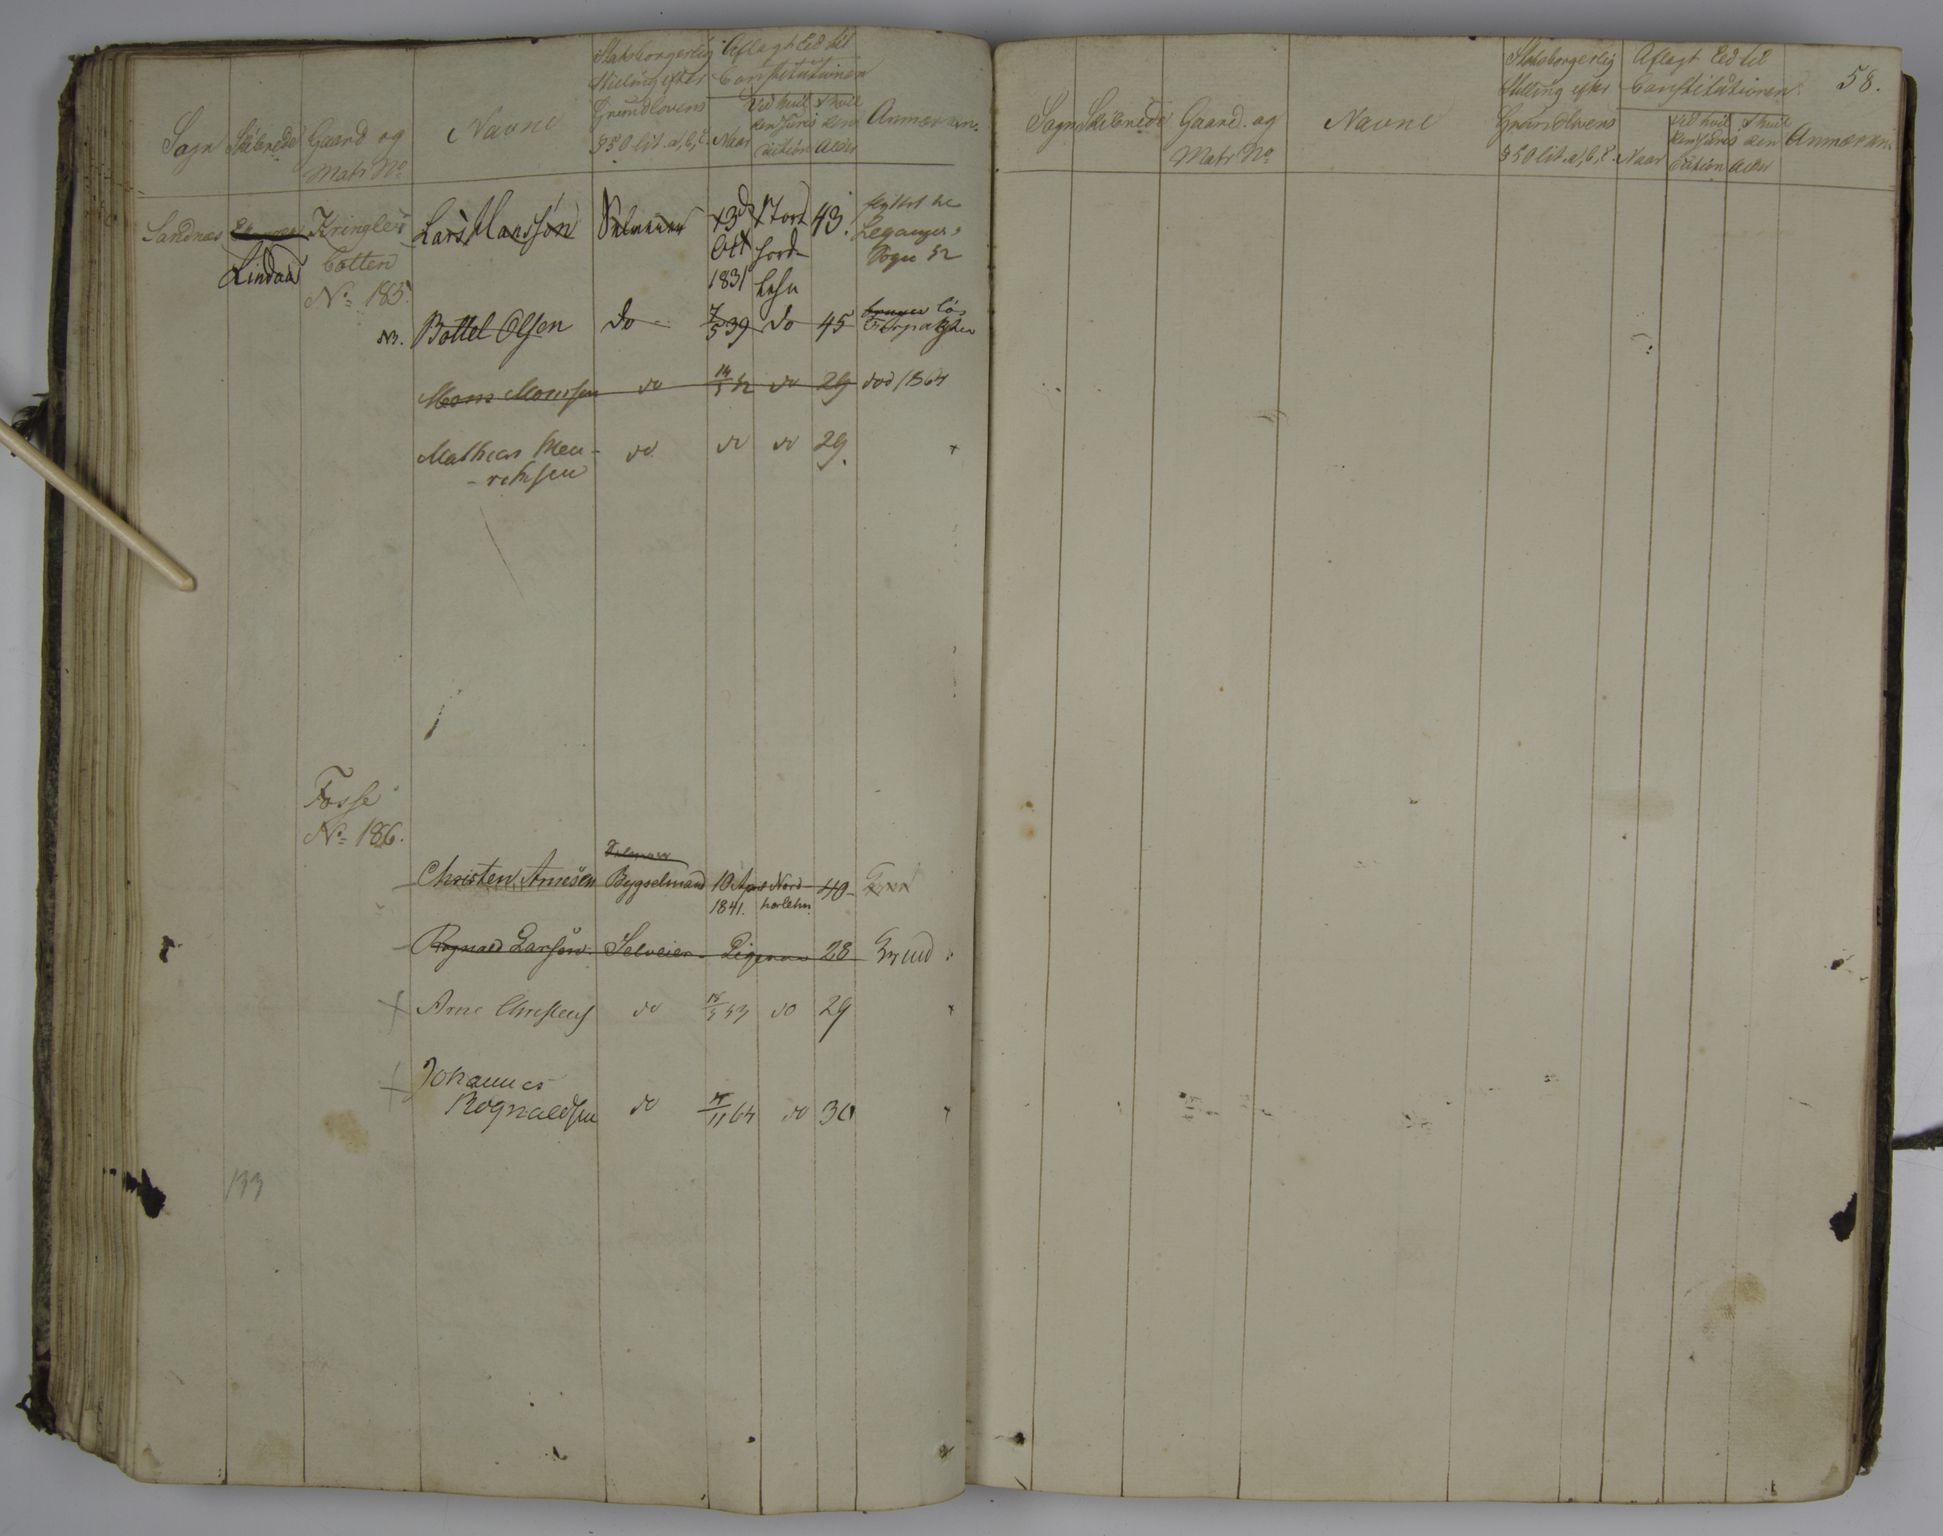 Sogn Skibrede Gaard og Matr No Navne Statsborgerlig Stilling efter Grundlovens § 50 lit. a, b, c. Aflagt Eed til Constitutionen Naar Ved hvilken Juris diction I hvilken Alder Anmærkn.
Sandnæs Lindaas Kringle-
botten
No 185.
Lars Monssøn Selveier 13de Oct 1831 Nord hord lehn 43. flyttet til Leganger Sogn 52
NB. Bottel Olsen do 7/5 39 do 45
Mons Monssen do 14/5 52 do 29 død 1864
Mathias Hen-
-richsen do do do 29.
Fosse
No 186.
Selveier
Christen Arnesen Bygselmand 10 Nord- 40
1841. horlehn.
Rognald Larsøn Selveier Ligesaa 28
Arne Christens do 53 do 29
Johannes
Rognaldsen do /11 64 do 30
133
58.
Sogn Skibrede Gaard og Matr No Navne Statsborgerlig Stilling efter Grundlovens § 50 lit. a, b, c. Aflagt Eed til Constitutionen Naar Ved hvilken Juris diction I hvilken Alder Anmærkn.